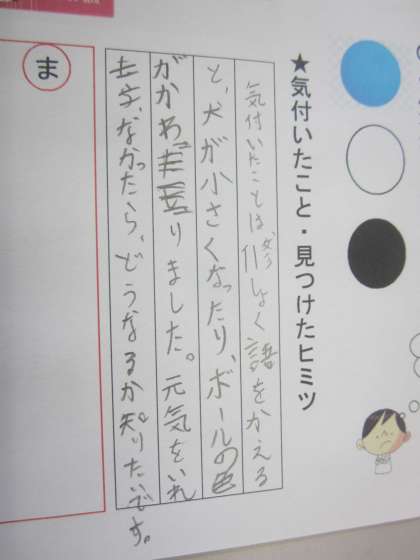 ★気付いたこと・見つけたヒミツ
気付いたことは修しょく語をかえる
と、犬が小さくなったり、ボールの色
がかわりました。元気をいれ
なかったら、どうなるか知りたいです。
ま